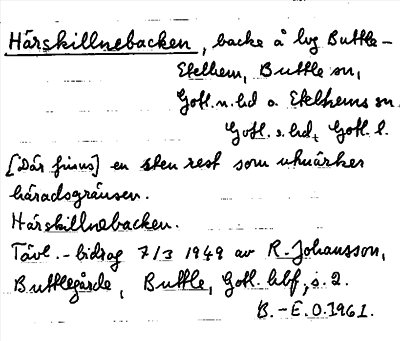 Härskillnebacken, backe å lvg Buttle-
Etelhem, Buttle sn,
Gotl. n. hd o. Etelhems sn.
Gotl. s. hd, Gotl. l.
[Där finns] en sten rest som utmärker
häradsgränsen.
Härskillnebacken.
Tävl.-bidrag 7/3 1949 av R. Johansson,
Buttlegårde, Buttle, Gotl. hbf, s. 2.
B.-E.O. 1961.